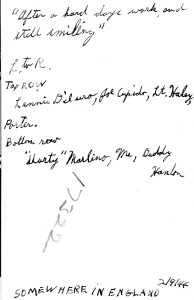 "After a hard days work and
still smiling"
L. to R.
Top ROW
Lennie D'Luro, Joe Cupido, Lt. Haley
Porter.
Bottom row
"Shorty" Marlino, Me, Buddy
Hanlon
17322
2/9/44
SOMEWHERE IN ENGLAND